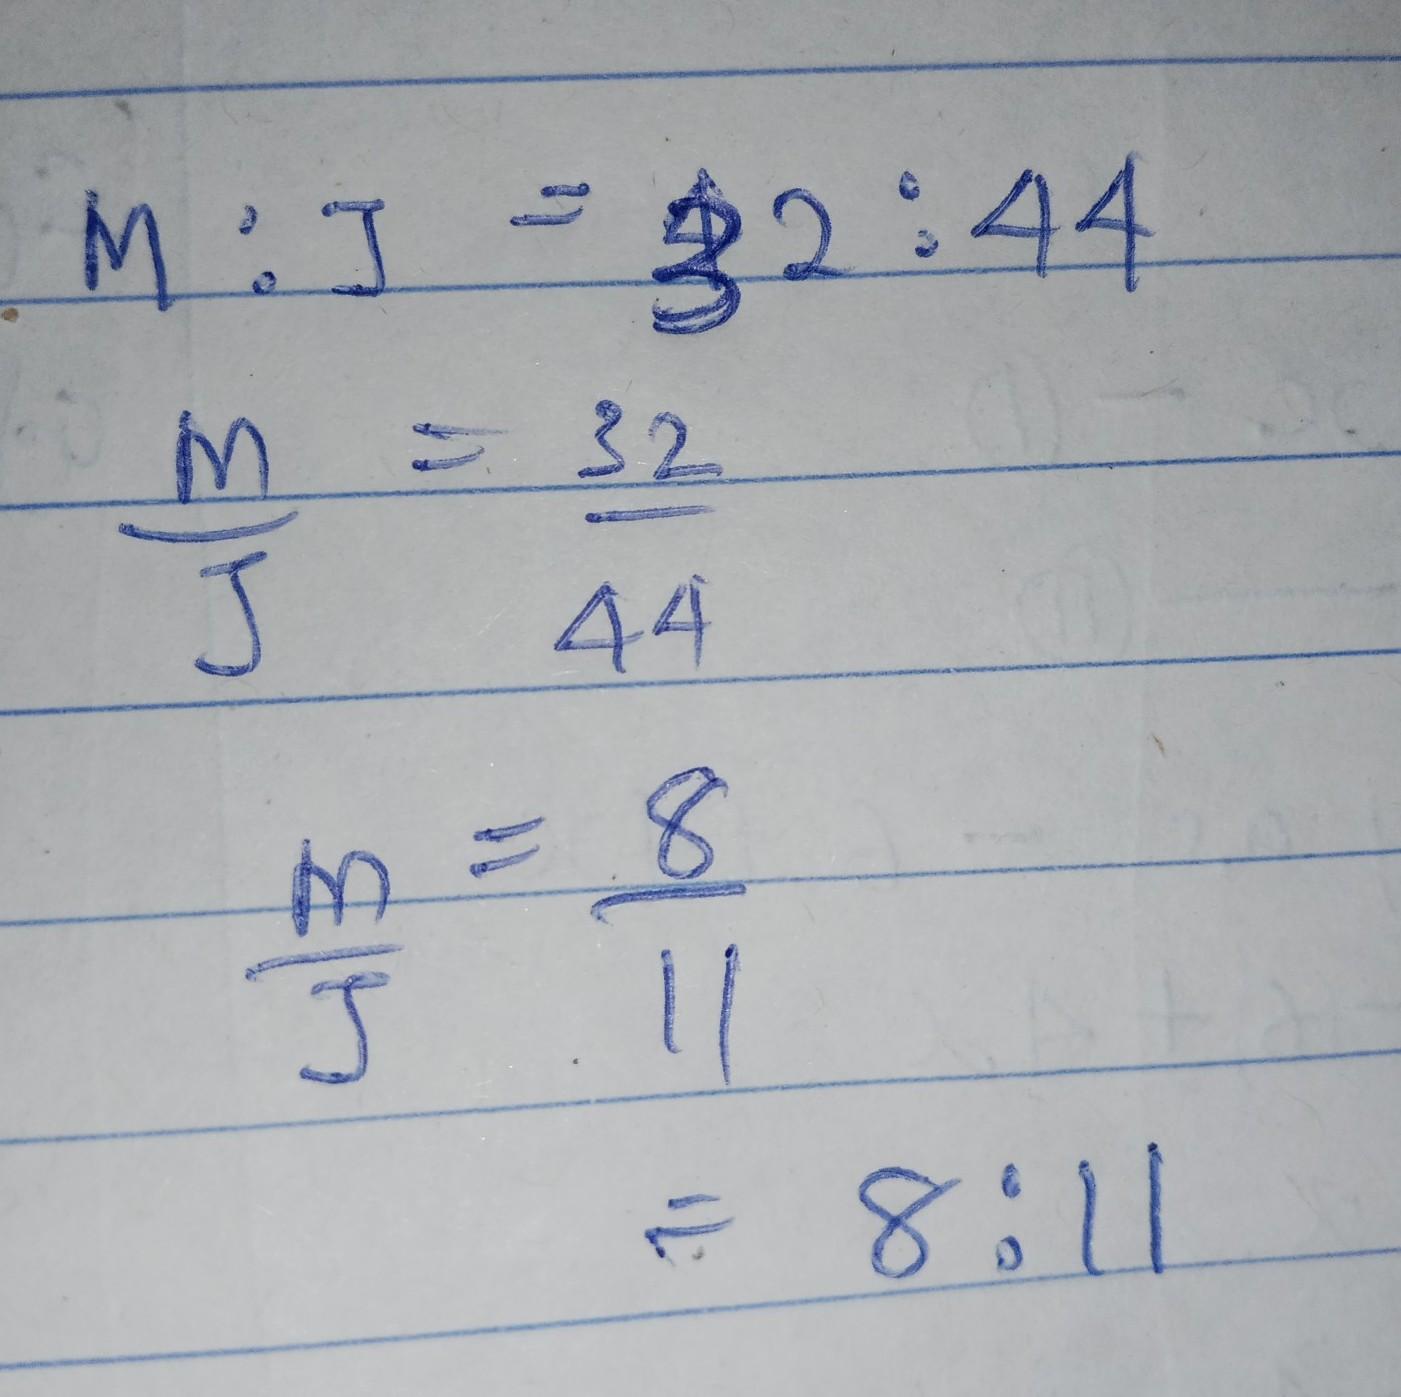 M : J = 32 : 44
M/J = 32/44
M/J = 8/11
= 8 : 11